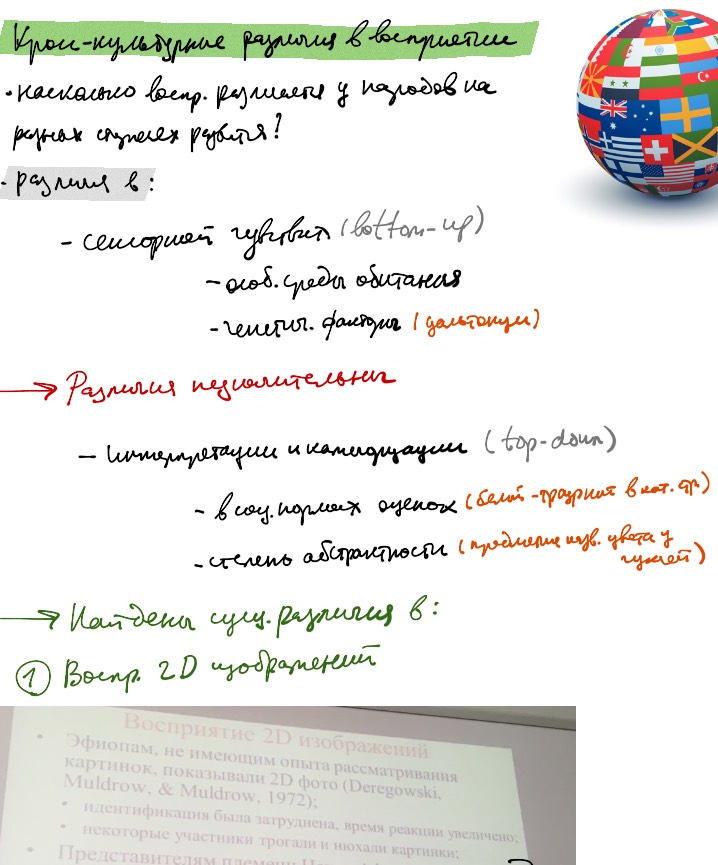 Кросс-культурные различия в восприятии
· насколько воспр. различается у народов на
разных ступенях развития?
- различия в:
- сенсорной чувствит. (bottom-up)
- особ. среды обитания
- генетич. факторы (дальтонизм)
→ Различия незначительны
- интерпретации и категоризации (top-down)
- в соц. нормах оценок (белый - траурный в кит. тр.)
- степень абстрактности (предметные назв. цвета у
)
→ Найдены сущ. различия в:
① Воспр. 2D изображений
Восприятие 2D изображений
• Эфиопам, не имеющим опыта рассматривания
картинок, показывали 2D фото (Deregowski,
Muldrow, & Muldrow, 1972);
• идентификация была затруднена, время реакции увеличено;
• некоторые участники трогали и нюхали картинки;
• Представителям племени